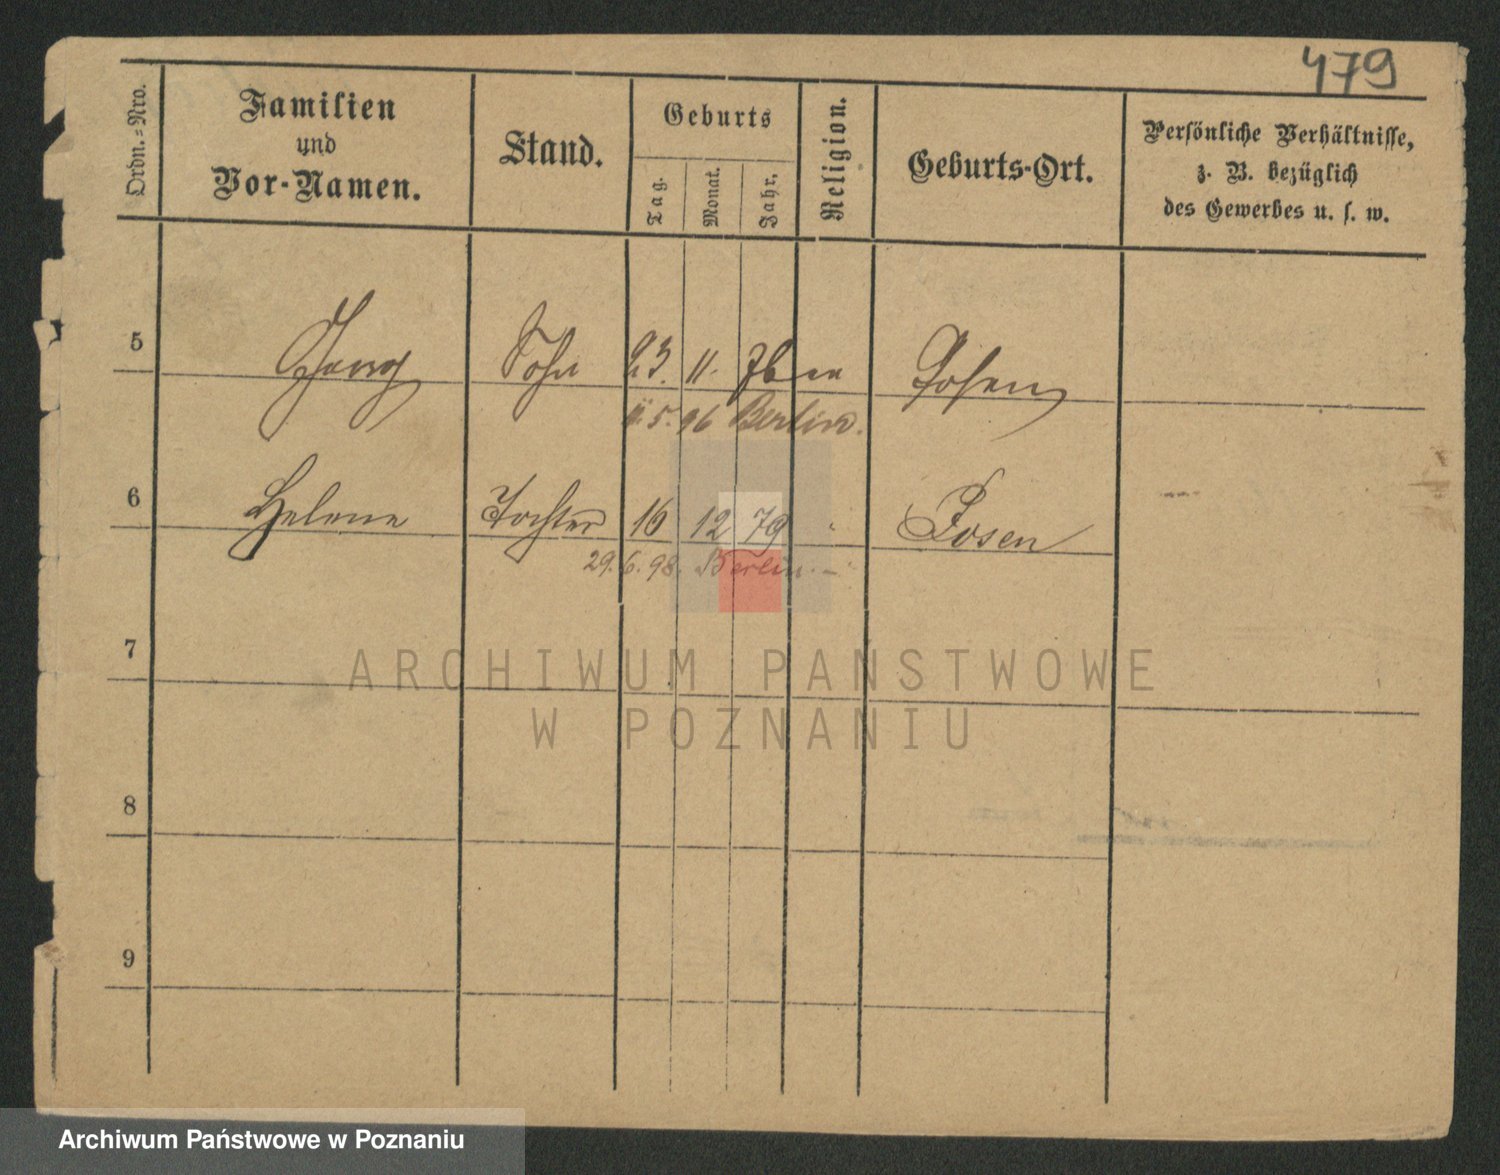 479
Ordn.=Nro.
Familien
und
Vor-Namen.
Stand.
Geburts
Tag.
Monat.
Jahr.
Religion.
Geburts-Ort.
Persönliche Verhältnisse,
z. B. bezüglich
des Gewerbes u. s. w.
5 Georg Sohn 23. 11. 76 Posen
11.5.96 Berlin.
6 Helene Tochter 16 12 79 Posen
29.6.98. Berlin.
7
ARCHIWUM PAŃSTWOWE
W POZNANIU
8
9
Archiwum Państwowe w Poznaniu